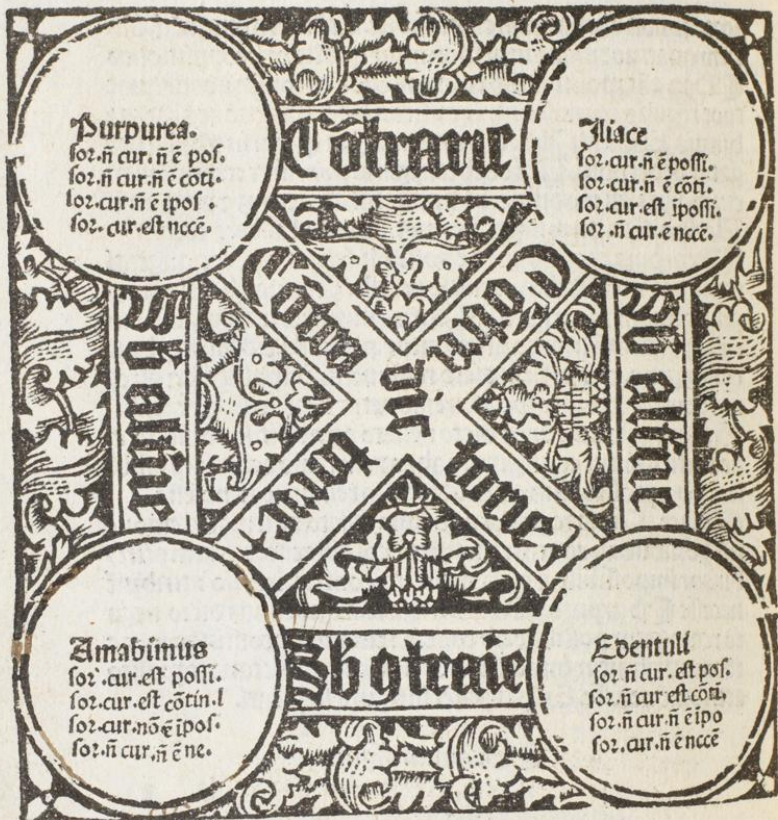 Purpurea.
sor. ñ cur. ñ ē pos.
sor. ñ cur. ñ ē cōti.
sor. cur. ñ ē ipos
sor. cur. est nccē.
Cōtrarie
Iliace
sor. cur. ñ ē possi.
sor. cur. ñ ē cōti.
sor. cur. est ipossi.
sor. ñ cur. ē nccē.
Sb alťne
Sb alťne
Amabimus
sor. cur. est possi.
sor. cur. est cōtin.
sor. cur. nō ē ipos.
sor. ñ cur. ñ ē ne.
Sb ꝯtrarie
Edentuli
sor. ñ cur. est pos.
sor. ñ cur est cōti.
sor. ñ cur. ñ ē ipo
sor. cur. ñ ē nccē